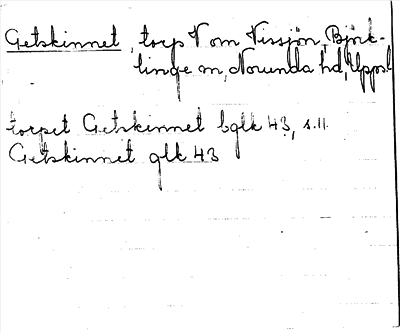 Getskinnet, torp V om Vissjön, Björk-
linge sn, Norunda hd, Uppsl
torpet Getskinnet bglk 43, s. 11.
Getskinnet glk 43